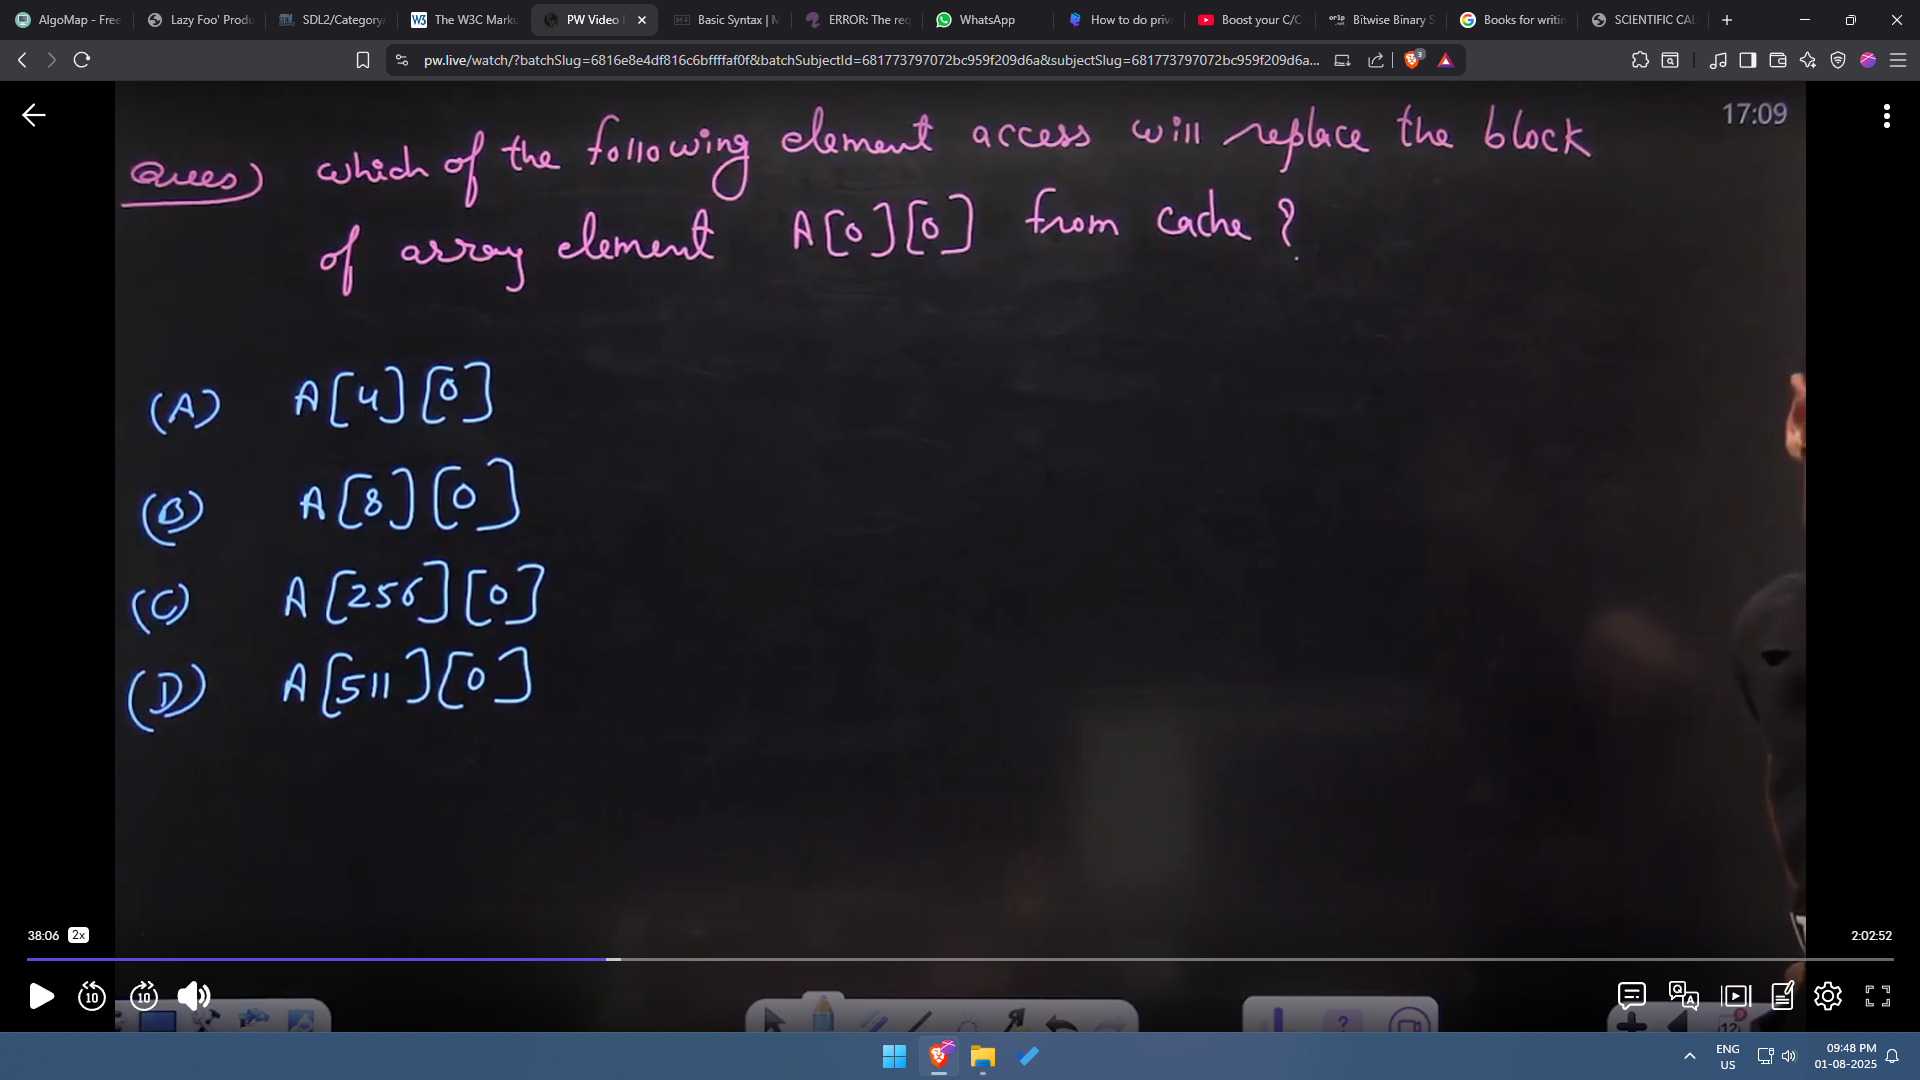 AlgoMap - Free
Lazy Foo' Produ
SDL2/Category
The W3C Marku
PW Video
Basic Syntax | M
ERROR: The req
WhatsApp
How to do priv
Boost your C/C
Bitwise Binary S
Books for writin
SCIENTIFIC CAL
pw.live/watch/?batchSlug=6816e8e4df816c6bffffaf0f&batchSubjectId=681773797072bc959f209d6a&subjectSlug=681773797072bc959f209d6a...
3
17:09
Ques) which of the following element access will replace the block
of array element A[0][0] from cache ?
(A) A[4][0]
(B) A[8][0]
(C) A[256][0]
(D) A[511][0]
38:06 2x
2:02:52
10 10
ENG
US
09:48 PM
01-08-2025